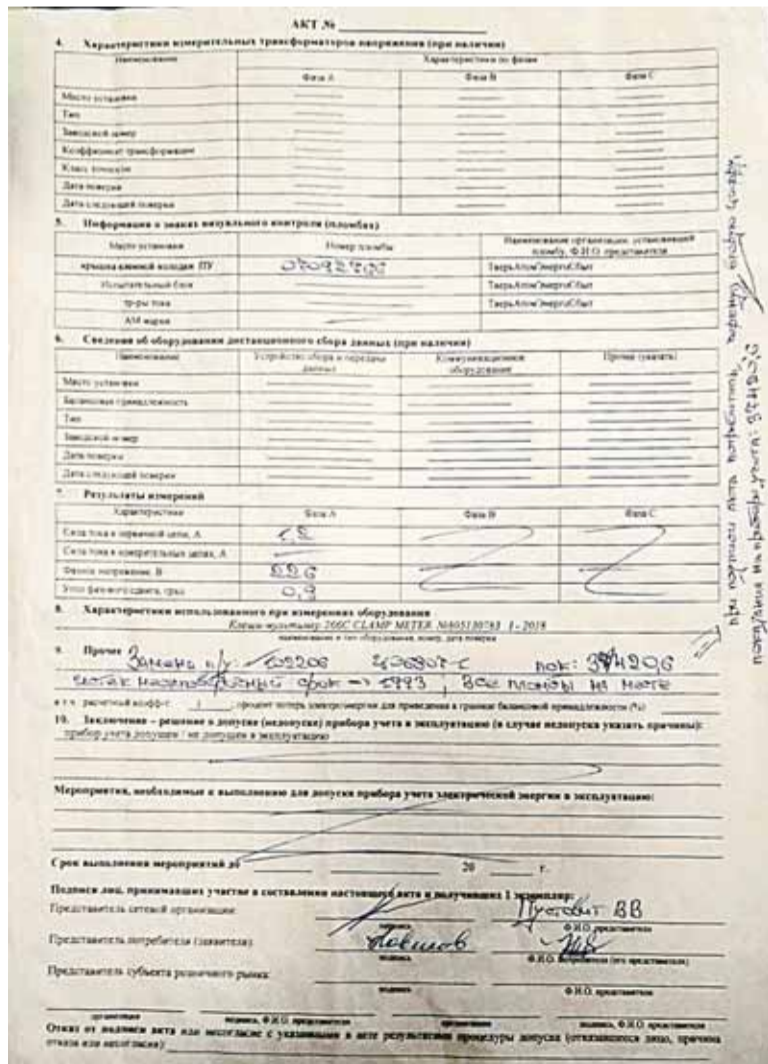 АКТ №
4. Характеристики измерительных трансформаторов напряжения (при наличии)
Наименование
Характеристики по фазам
Фаза А Фаза В Фаза С
Место установки
Тип
Заводской номер
Коэффициент трансформации
Класс точности
Дата поверки
Дата следующей поверки
5. Информация о знаках визуального контроля (пломбах)
Место установки Номер пломбы Наименование организации, установившей пломбу, Ф.И.О. представителя
крышка клеммной колодки ПУ ТверьАтомЭнергоСбыт
Испытательный блок ТверьАтомЭнергоСбыт
тр-ры тока ТверьАтомЭнергоСбыт
АМ марка
6. Сведения об оборудовании дистанционного сбора данных (при наличии)
Наименование Устройство сбора и передачи данных Коммуникационное оборудование Прочее (указать)
Место установки
Балансовая принадлежность
Тип
Заводской номер
Дата поверки
Дата следующей поверки
7. Результаты измерений
Характеристики Фаза А Фаза В Фаза С
Сила тока в первичной цепи, А
Сила тока в измерительных цепях, А
Фазное напряжение, В 226
Угол фазного сдвига, град 0,9
8. Характеристики использованного при измерениях оборудования
Клещи-мультиметр 266C CLAMP METER
наименование и тип оборудования, номер, дата поверки
9. Прочее Замена п/у пок: 37420,6
срок → 1993; Все пломбы на месте
в т.ч. расчетный коэфф-т 1, процент потерь электроэнергии для приведения к границе балансовой принадлежности (%)
10. Заключение – решение о допуске (недопуске) прибора учета в эксплуатацию (в случае недопуска указать причины):
прибор учета допущен / не допущен в эксплуатацию
Мероприятия, необходимые к выполнению для допуска прибора учета электрической энергии в эксплуатацию:
Срок выполнения мероприятий до 20 г.
Подписи лиц, принимавших участие в составлении настоящего акта и получивших 1 экземпляр:
Представитель сетевой организации: Пустовит ВВ
подпись Ф.И.О. представителя
Представитель потребителя (заявителя):
подпись Ф.И.О. потребителя (его представителя)
Представитель субъекта розничного рынка:
подпись Ф.И.О. представителя
организация подпись, Ф.И.О. представителя организация подпись, Ф.И.О. представителя
Отказ от подписи акта или несогласие с указанными в акте результатами процедуры допуска (отказавшееся лицо, причина отказа или несогласие):
при подписи акта потребитель, вторую цифру
показания на приборе учета: 37420,6